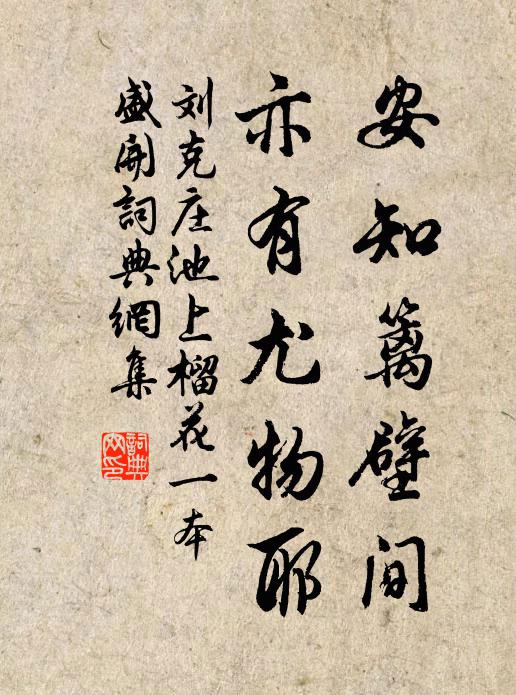 安知篱壁间
亦有尤物耶
刘克庄池上榴花一本
盛开詞典網集
詞典
网印